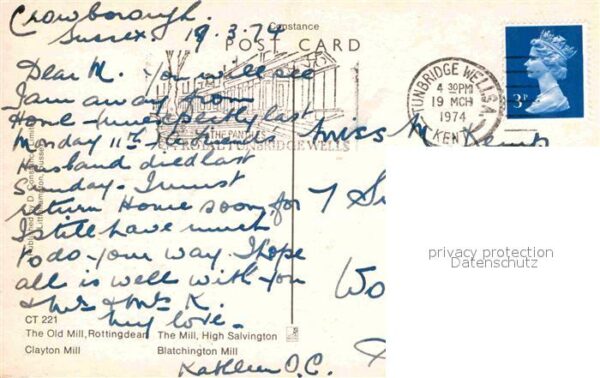 Crowborough.
Sussex 19.3.74
Constance
POST CARD
Dear M. You will see
I am away from
Home - unexpectly last
Monday 11th
Husband died last
Sunday - I must
return Home soon for
I still have much
to do - your way. I hope
all is well with you
& Mrs & Mr K.
my love -
Kathleen O.C.
Miss M. Kemp
7
THE PANTILES
ROYAL TUNBRIDGE WELLS
TUNBRIDGE WELLS
4 30PM
19 MCH
1974
KENT
3P
Published by D. Constance Limited
Littlehampton, Sussex
CT 221
The Old Mill, Rottingdean The Mill, High Salvington
Clayton Mill Blatchington Mill
privacy protection
Datenschutz